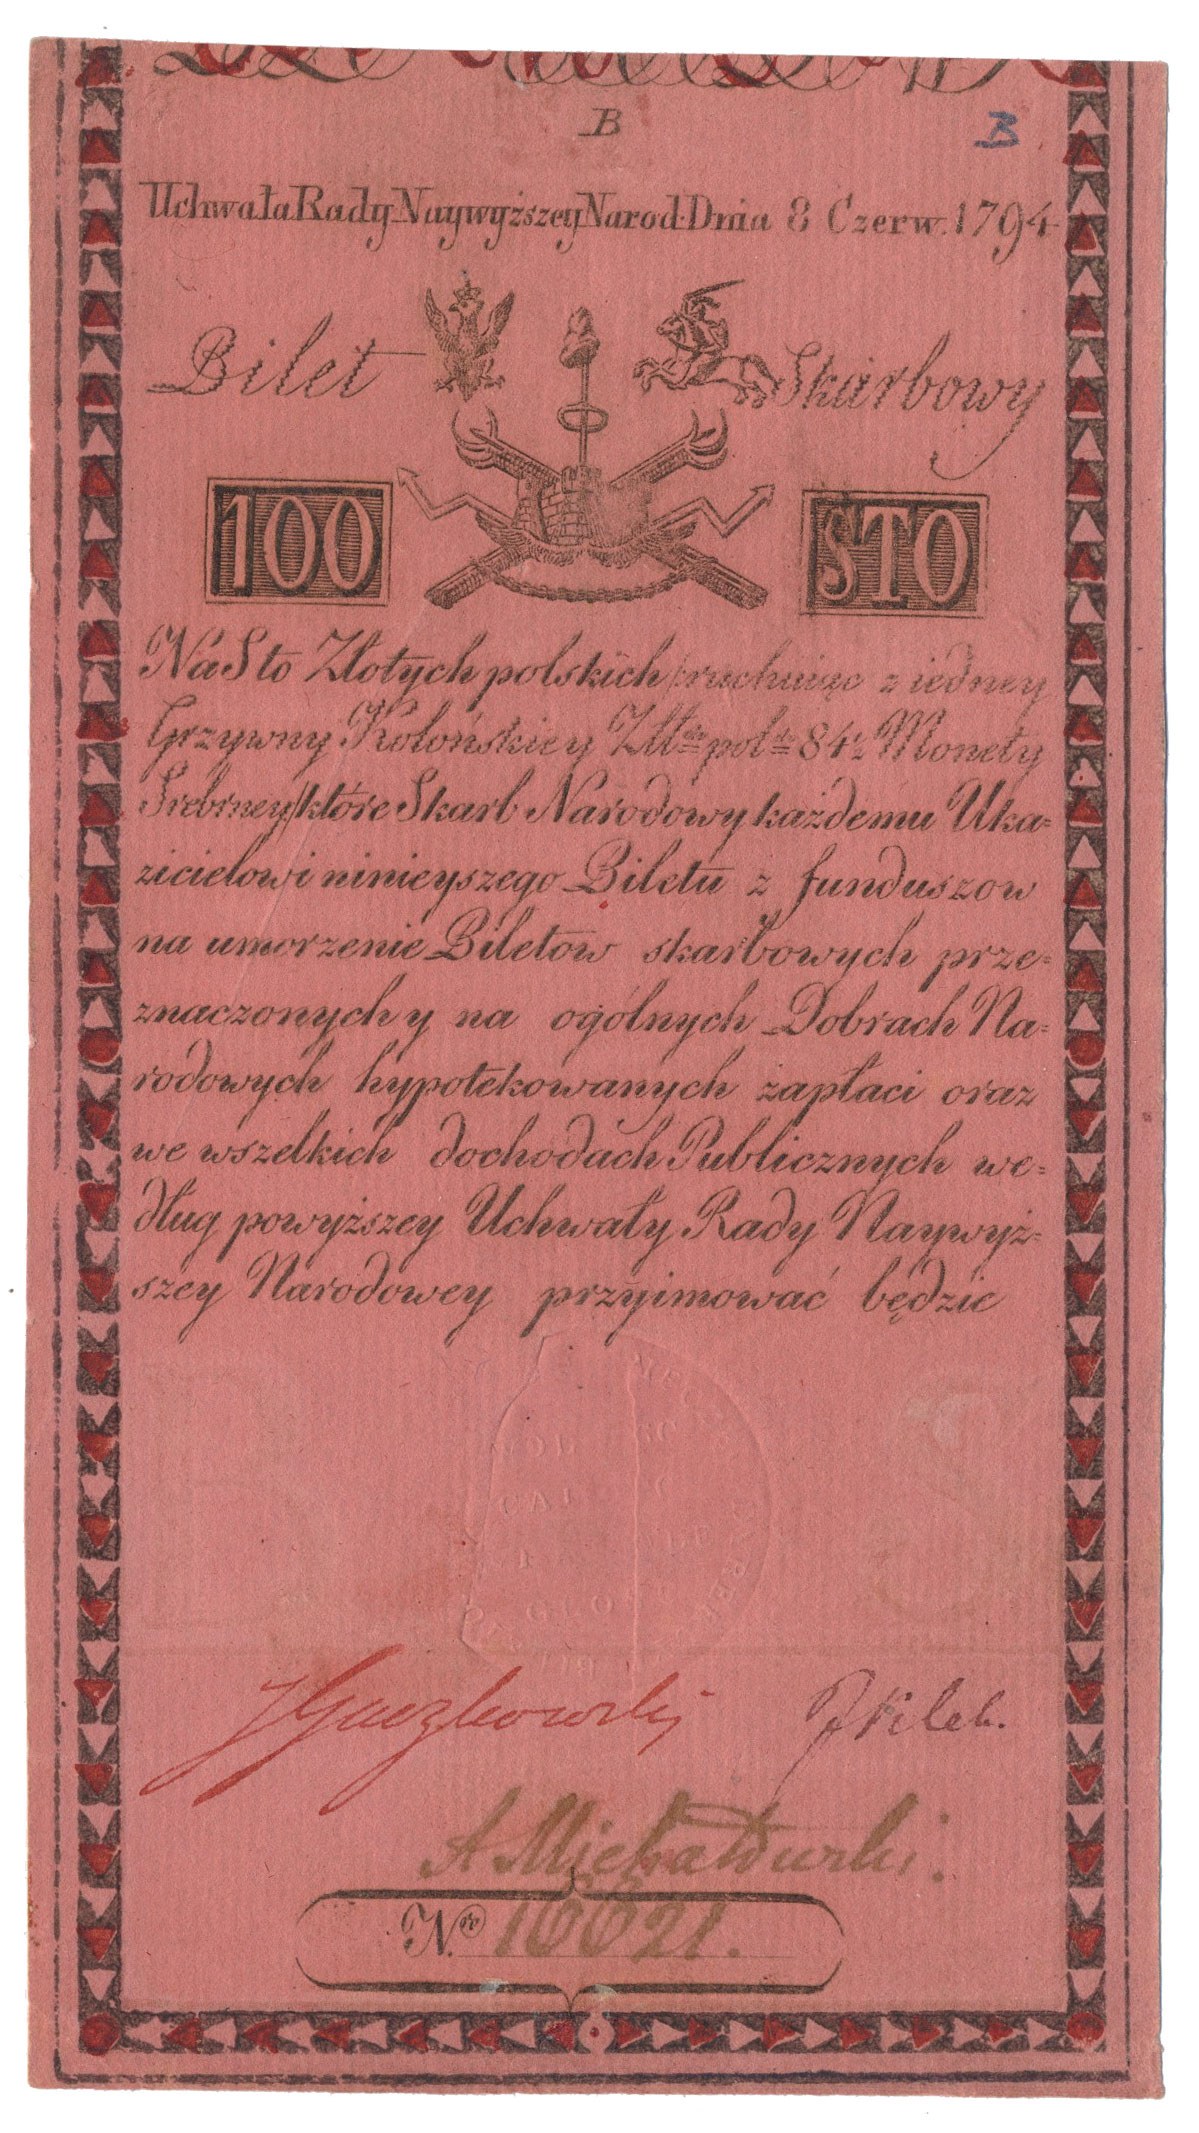 B B
Uchwała Rady Naywyższey Narod. Dnia 8 Czerw. 1794
Bilet Skarbowy
100 STO
Na Sto Złotych polskich /:rachuiąc z iedney
Grzywny Kolońskiey Złł pol 84½ Monety
Srebrney:/ które Skarb Narodowy każdemu Uka=
zicielowi ninieyszego Biletu z funduszow
na umorzenie Biletow skarbowych prze=
znaczonych y na ogólnych Dobrach Na=
rodowych hypotekowanych zapłaci oraz
we wszelkich dochodach Publicznych we=
dług powyższey Uchwały Rady Naywyż=
szey Narodowey przyimować będzie
JGaczkowski JKilek.
A Michałowski.
N.ro 16621.